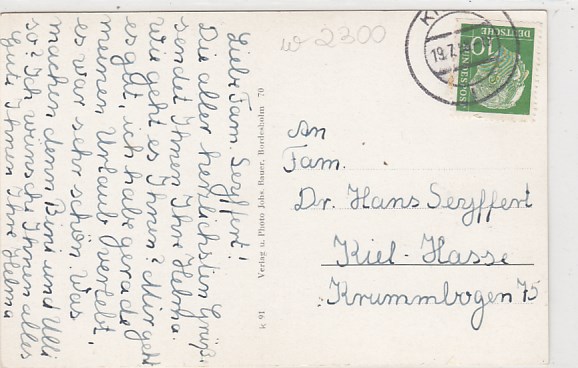 Liebe Fam. Seyffert!
Die aller herzlichsten Grüße
sendet Ihnen Ihre Helma.
wie geht es Ihnen? Mir geht
es gut, ich habe gerade
meinen Urlaub verlebt,
es war sehr schön. Was
machen denn Bini und Ulli
so? Ich wünsche Ihnen alles
Gute Ihnen Ihre Helma
K 91 Verlag u. Photo Johs. Bauer, Bordesholm 70
w 2300
19.7.
10
DEUTSCHE
BUNDESPOST
An
Fam.
Dr. Hans Seyffert
Kiel-Hasse
Krummbogen 75